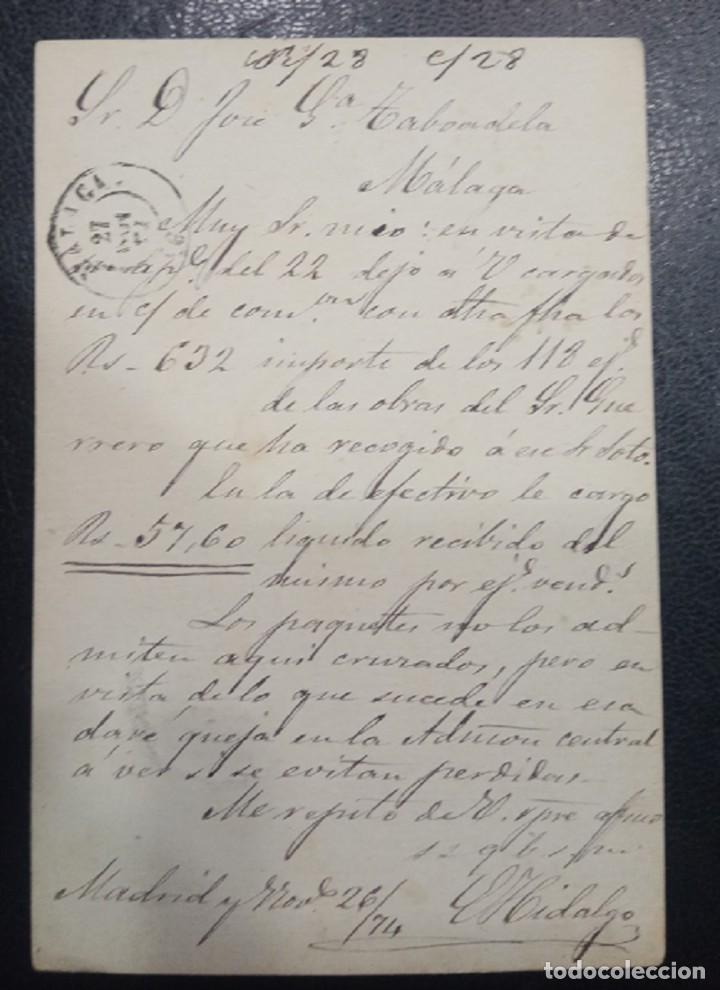 c/28
Sr. D José Gª. Taboadela
Málaga
MALAGA
Muy Sr. mio: en vista de
del 22 dejo á V cargados
en c/ de com.on con otra fha los
Rs - 632 importe de los 118 ejs.
de las obras del Sr. Gue
rrero que ha recogido á en Sr Soto.
En la de efectivo le cargo
Rs - 57,60 liquido recibido del
mismo por ejs. vends.
Los paquetes no los ad-
miten aqui cruzados, pero en
vista de lo que sucede en esa
daré queja en la Admon central
á ver si se evitan perdidas -
Me repito de V. spre afmo
s s q b s m
Madrid y Nov. 26/74 Hidalgo
todocoleccion